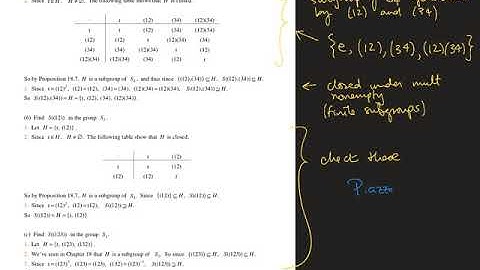 2. Since ι∈H, H≠∅. The following table show that H is closed.
· ι (12) (34) (12)(34)
ι ι (12) (34) (12)(34)
(12) (12) ι (12)(34) (34)
(34) (34) (12)(34) ι (12)
(12)(34) (12)(34) (34) (12) ι
So by Proposition 19.7, H is a subgroup of S
3. Since ι=(12)², (12)=(12), (34)=(34), (12)(34)=(12)(34),
So S((12),(34))=H={ι, (12), (34), (12)(34)}.
(b) Find S((12)) in the group S
1. Let H={ι, (12)}
2. Since ι∈H, H≠∅. The following table show that H is closed.
· ι (12)
ι ι (12)
(12) (12) ι
So by Proposition 19.7, H is a subgroup of S Since {(12)}⊆H, S((12))⊆H.
3. Since ι=(12)², (12)=(12), H⊆S((12)).
So S((12))=H={ι, (12)}
(c) Find S((123)) in the group S
1. Let H={ι, (123), (132)}.
2. We've seen in Chapter 19 that H is a subgroup of S So since {(123)}⊆H, S((123))⊆H.
by (12) and (34)
{e, (12), (34), (12)(34)}
← closed under mult
nonempty
(finite subgroups)
check these
Piazza